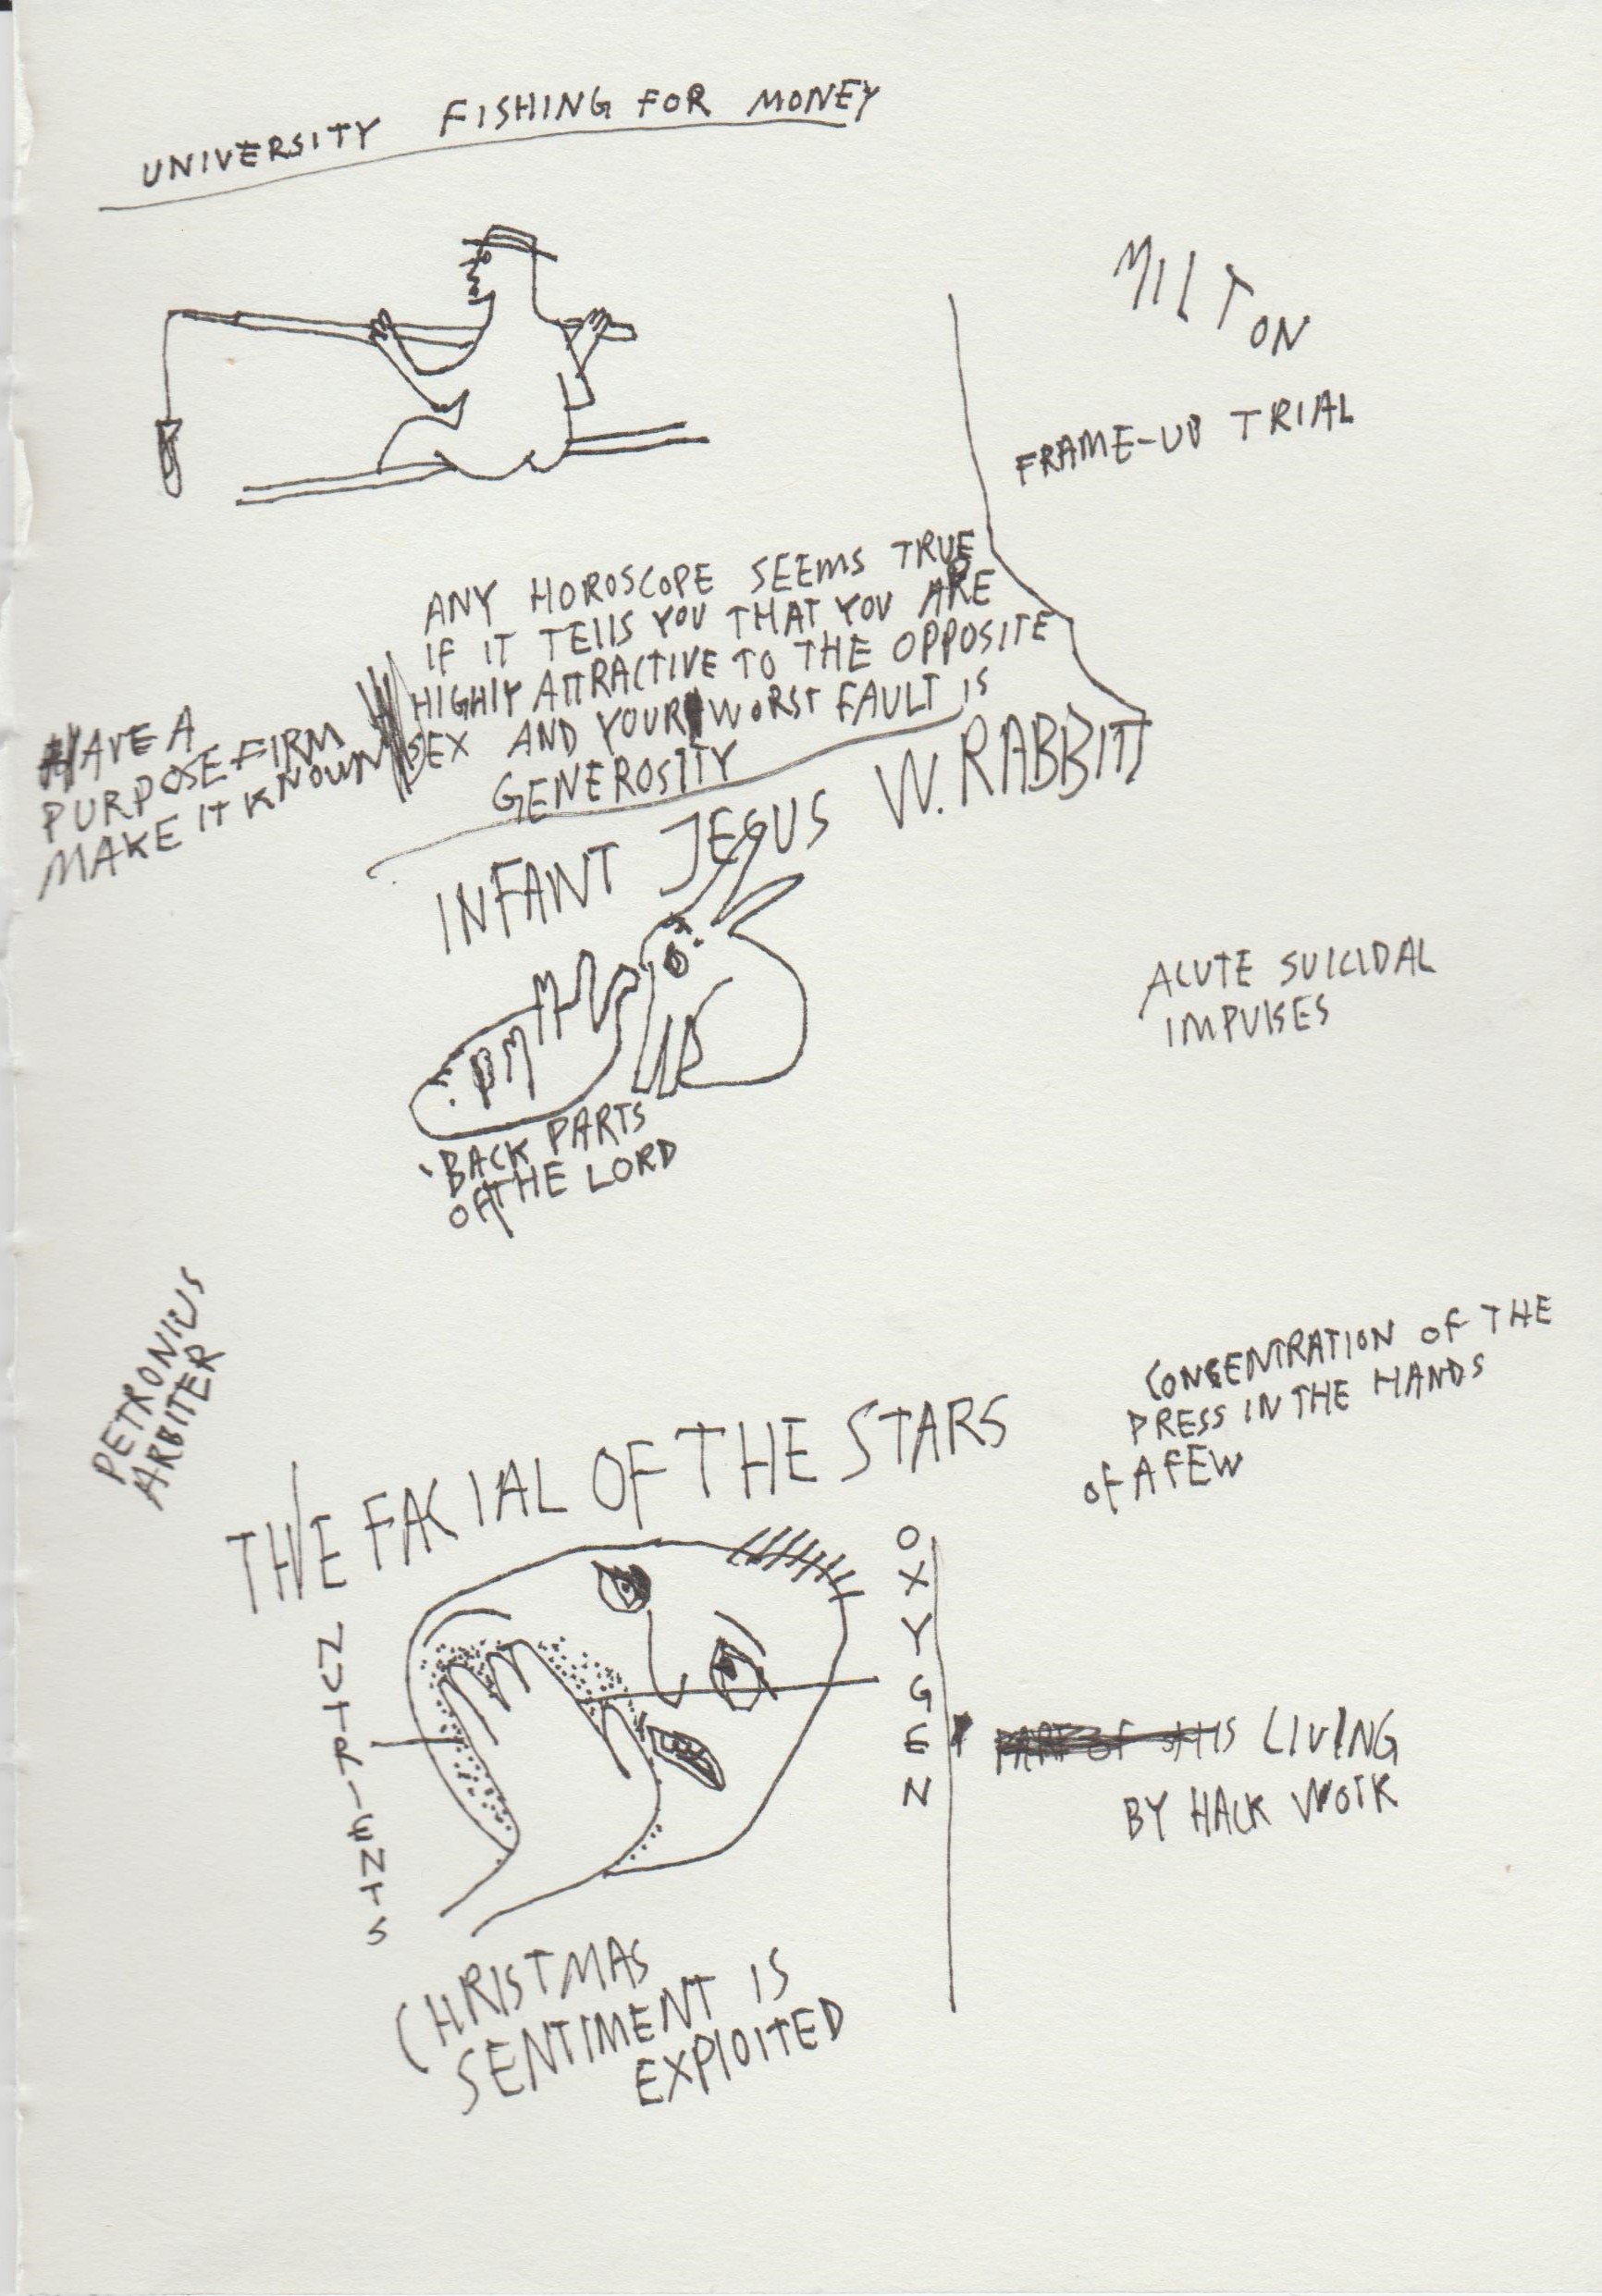 UNIVERSITY FISHING FOR MONEY
MILTON
FRAME-UP TRIAL
ANY HOROSCOPE SEEMS TRUE
IF IT TELLS YOU THAT YOU ARE
HIGHLY ATTRACTIVE TO THE OPPOSITE
SEX AND YOUR WORST FAULT IS
GENEROSITY
HAVE A
PURPOSE-FIRM
MAKE IT KNOWN
INFANT JESUS W. RABBITS
BACK PARTS
OF THE LORD
ACUTE SUICIDAL
IMPULSES
PETRONIUS
ARBITER
CONCENTRATION OF THE
PRESS IN THE HANDS
OF A FEW
THE FACIAL OF THE STARS
NUTRIENTS
OXYGEN
PART OF HIS LIVING
BY HACK WORK
CHRISTMAS
SENTIMENT IS
EXPLOITED